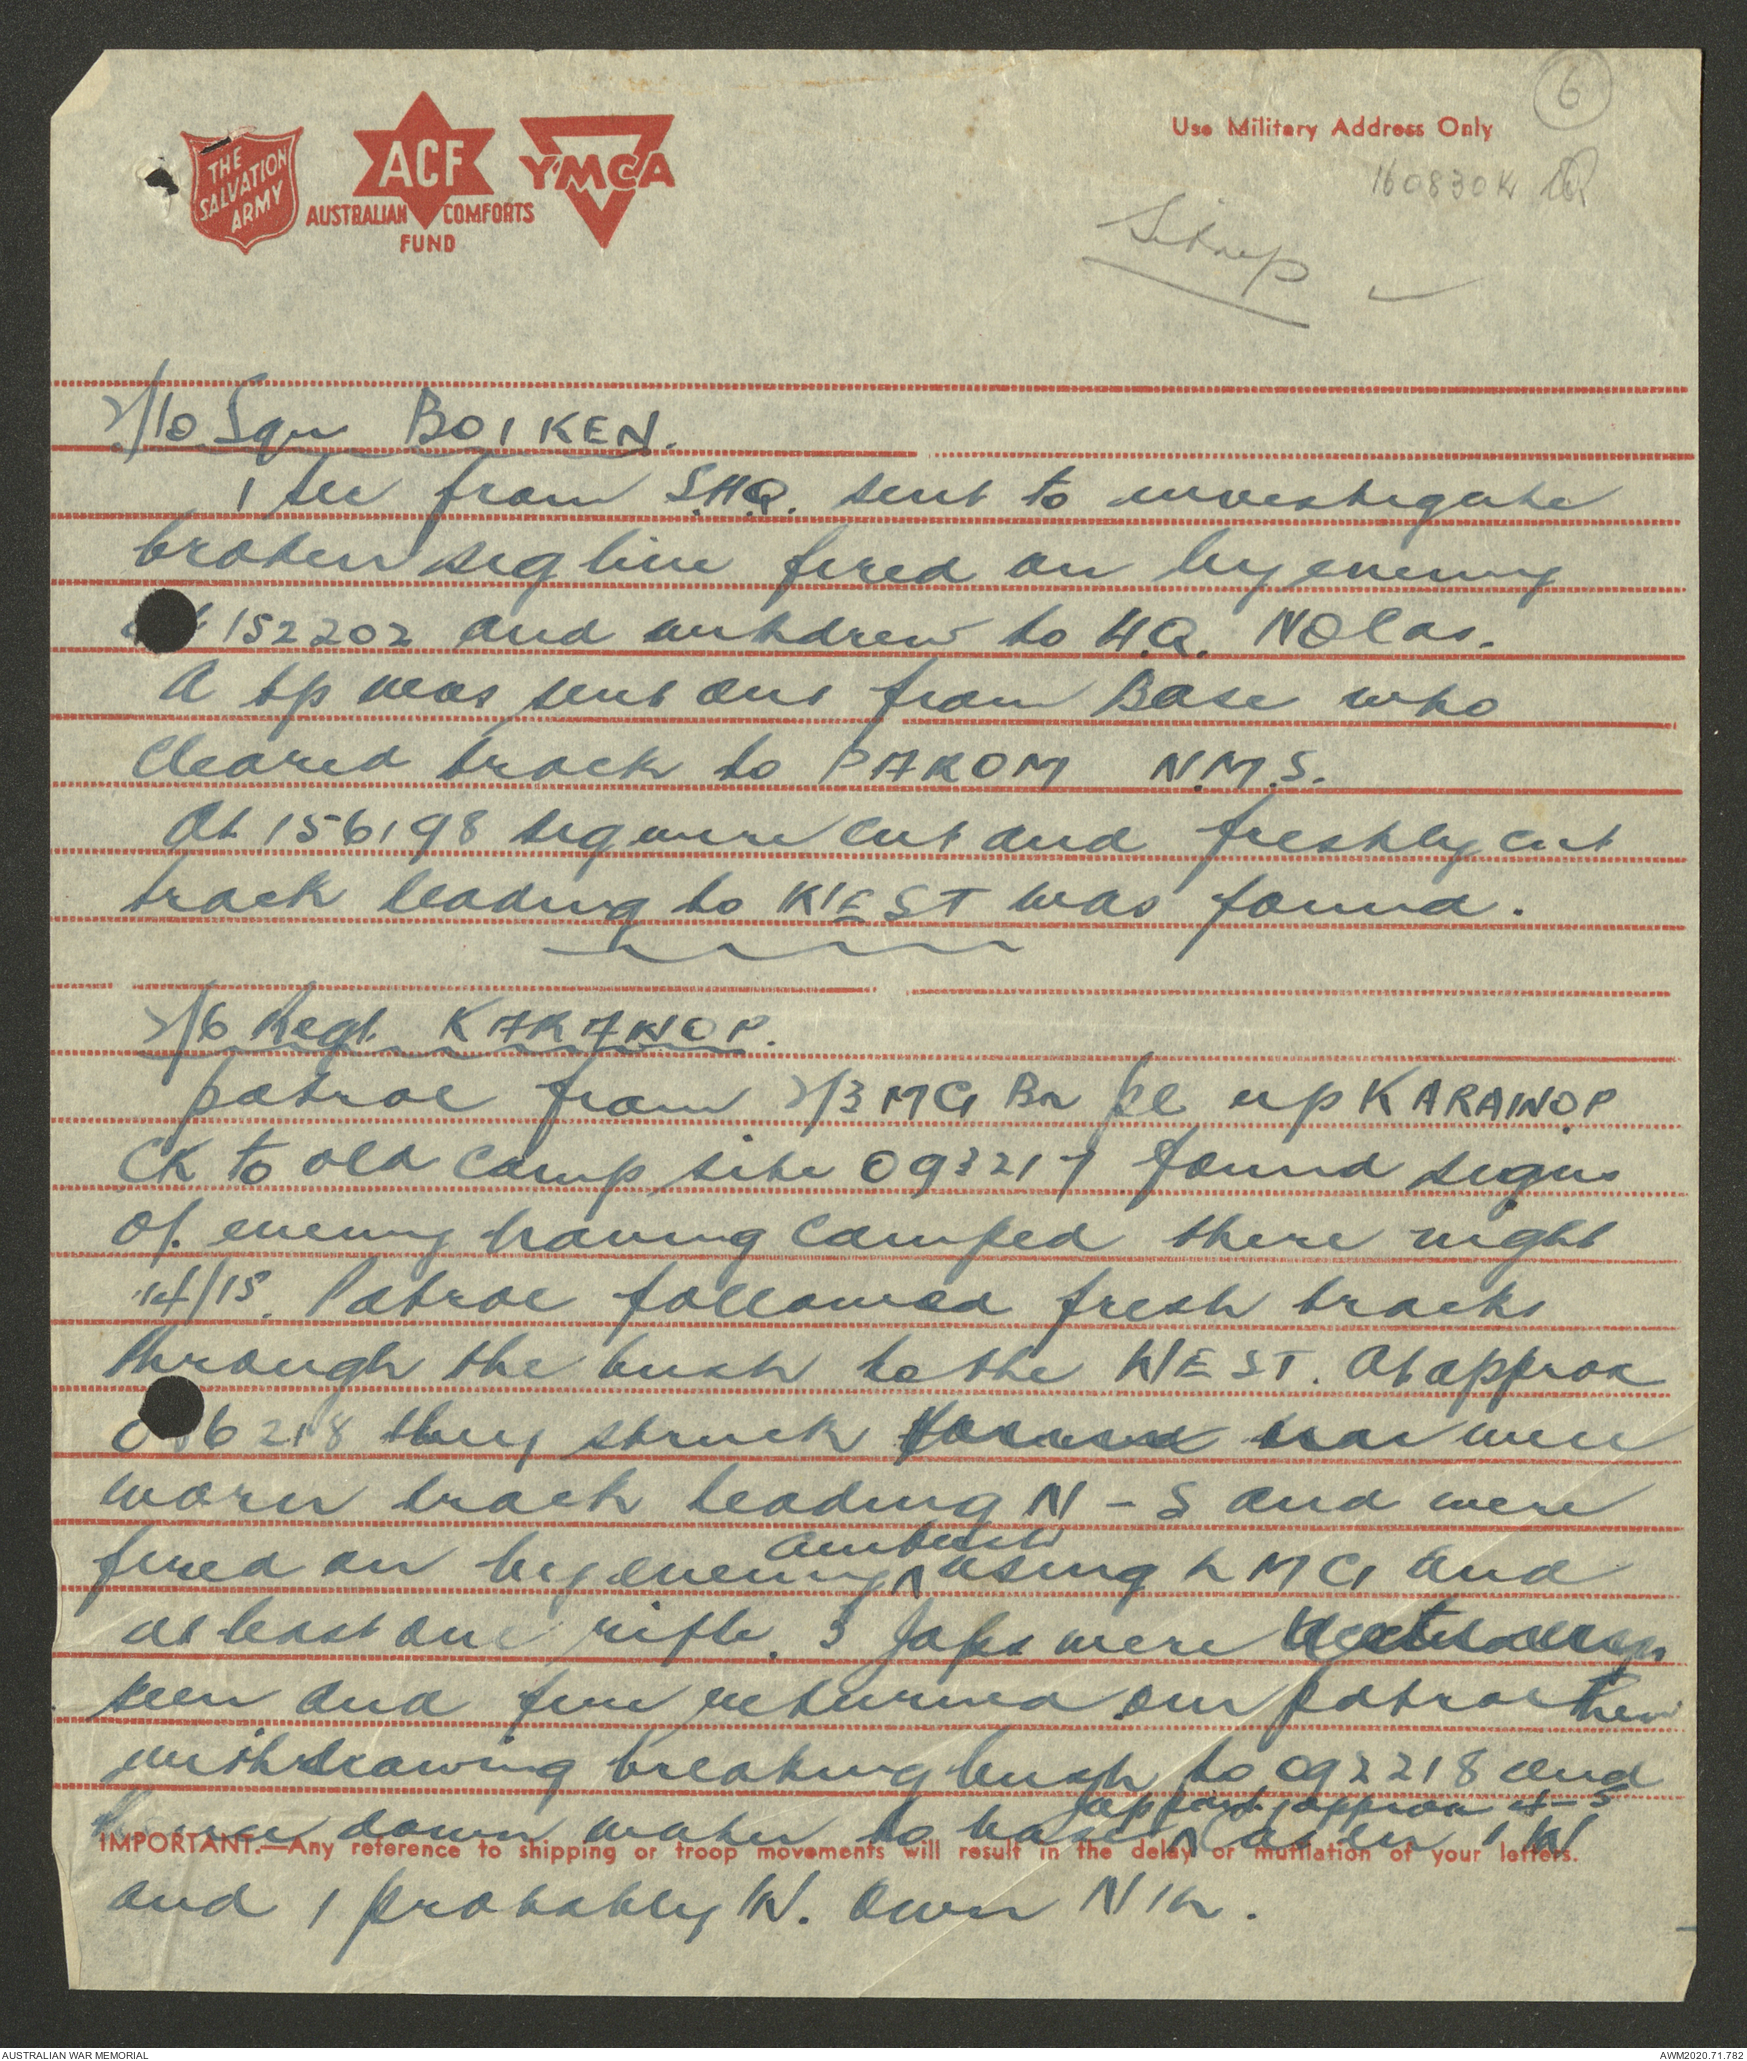 6
THE
SALVATION
ARMY
ACF
AUSTRALIAN COMFORTS
FUND
YMCA
Use Military Address Only
160830K
Sitrep
2/10 Sqn BOIKEN.
1 sec from S.H.Q. sent to investigate
broken sig line fired on by enemy
152202 and withdrew to H.Q. NO Cas.
A tp was sent out from Base who
cleared track to PAROM N.M.S.
At 156198 sig wire cut and freshly cut
track leading to WEST was found.
2/6 Regt. KARAWOP.
patrol from 2/3 MG Bn pl up KARAWOP
CK to old camp site 093217 found signs
of enemy having camped there night
14/15. Patrol followed fresh tracks
through the bush to the WEST. At approx
6218 they struck well
worn track leading N-S and were
fired on by enemy ambush using LMG and
at least one rifle. 3 Japs were
seen and fire returned our patrol then
withdrawing breaking bush to 092218 and
appard. approx 4-5
down water to base 1 W
IMPORTANT.—Any reference to shipping or troop movements will result in the delay or mutilation of your letters.
and 1 probably W. Own Nil.
AUSTRALIAN WAR MEMORIAL
AWM2020.71.782